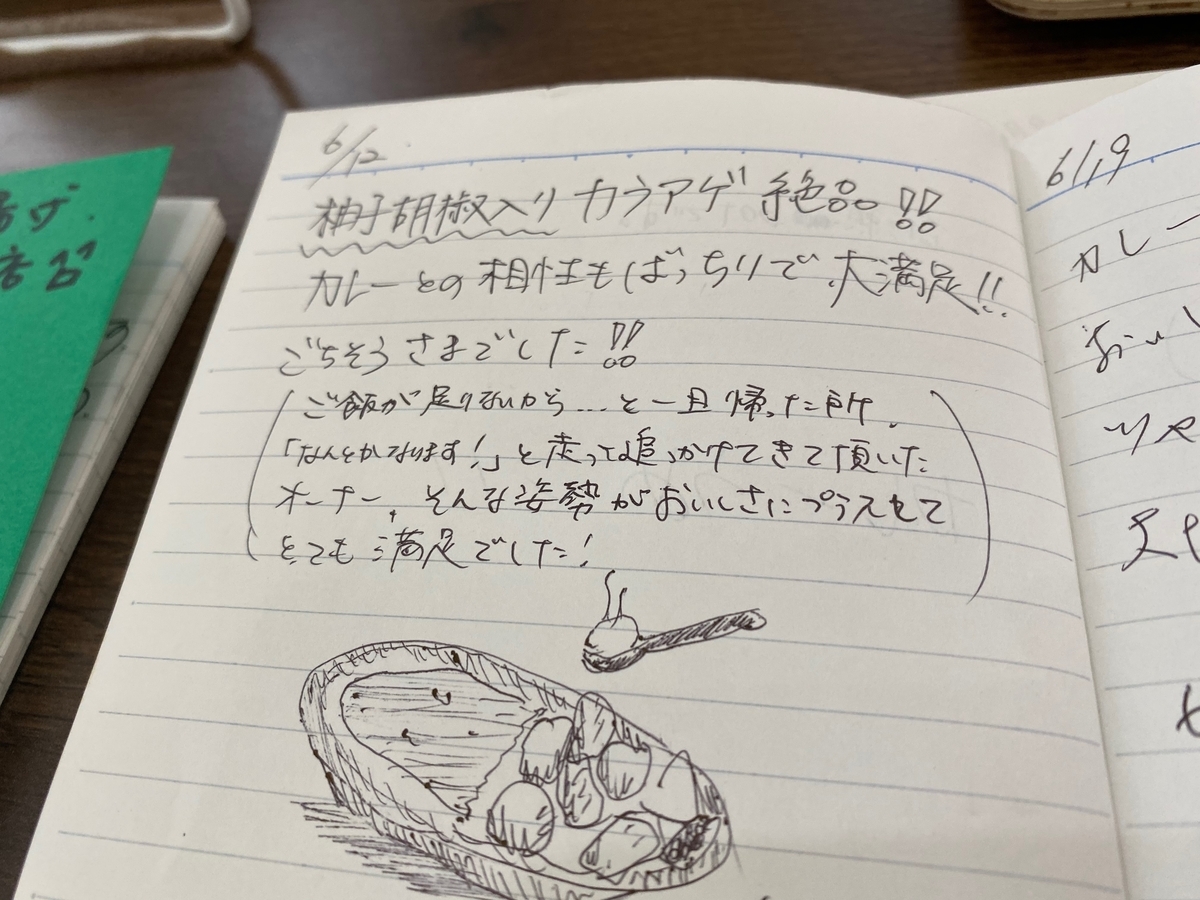 6/12
柚子胡椒入り カラアゲ 絶品!!
カレーとの相性もばっちりで、大満足!!
ごちそうさまでした!!
(ご飯が足りないから…と一旦帰った所、
「なんとかなります!」と走って追っかけてきて頂いた
オーナー、そんな姿勢がおいしさにプラスして
とても満足でした!)
6/19
カレー
おいし